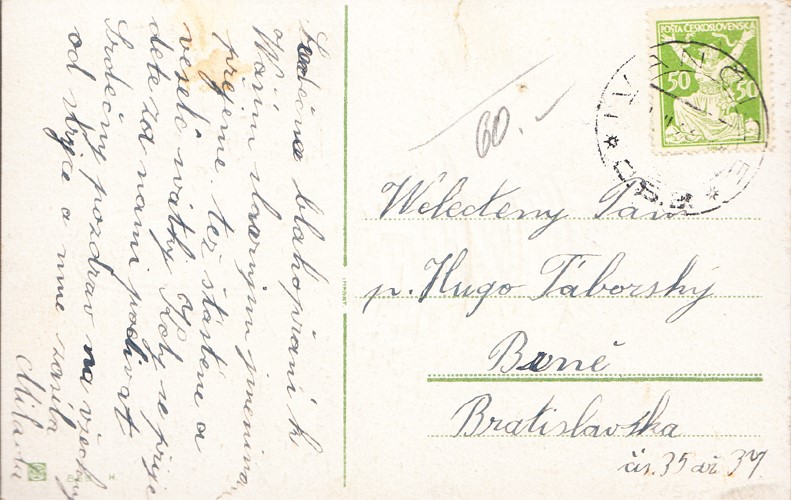 Srdečné blahopřaní k
Vaším slavnym jmeninam
přejeme tež štastene a
veselé svatky Kdy se přije
dete za nami podivat
Srdečný pozdrav na všechny
od stryce a mne zasila
Milada
60.-
POŠTA ČESKOSLOVENSKÁ
50 50
Welectény Pan
p. Hugo Táborský
Brně
Bratislavska
čis. 35 až 37